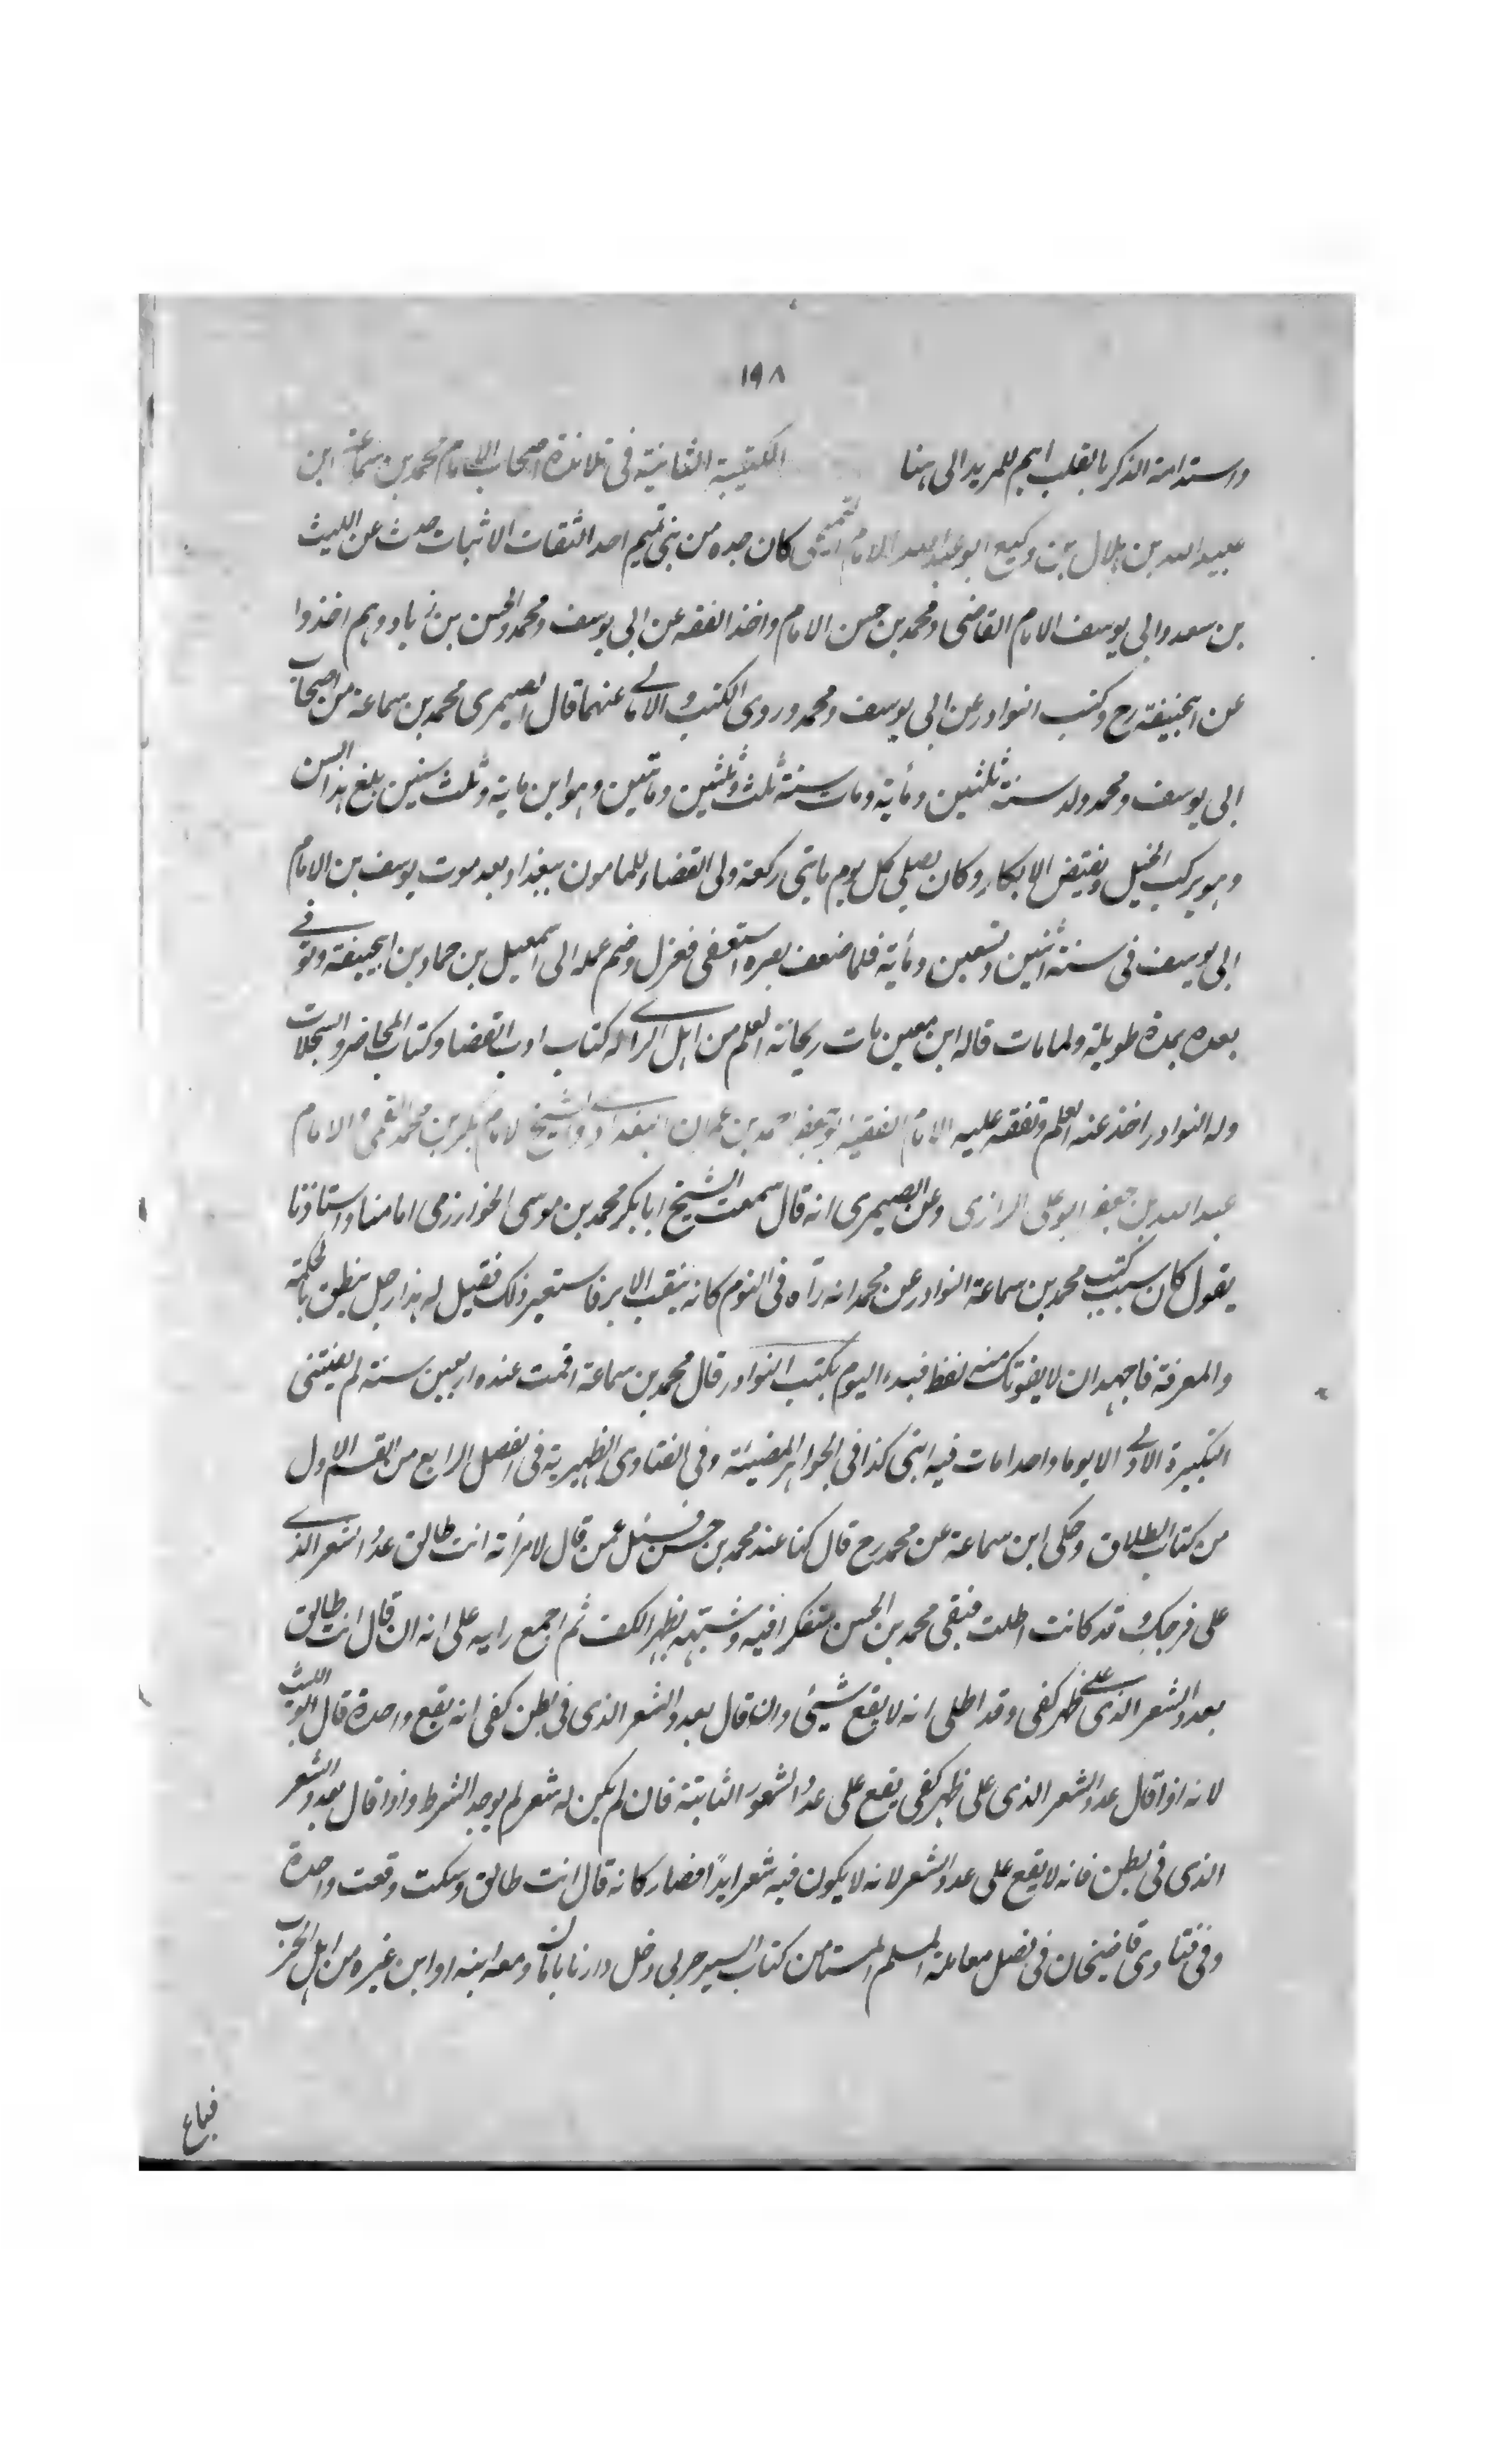 ١٩٨
واستدامة الذكر بالقلب اهم للمريد الى هنا الكتيبة الثانية فى تلامذة اصحاب الامام محمد بن سماعة ابن
عبيد الله بن هلال بن وكيع ابو عبد الله الامام التميمى كان جده من بنى تميم احد الثقات الاثبات حدث عن الليث
بن سعد وابى يوسف الامام القاضى ومحمد بن حسن الامام واخذ الفقه عن ابى يوسف ومحمد والحسن بن زياد وهم اخذوا
عن ابيحنيفة رح وكتب النوادر عن ابى يوسف ومحمد وروى الكتب والامالى عنهما قال الصيمرى محمد بن سماعة من اصحاب
ابى يوسف ومحمد ولد سنة ثلثين ومأية ومات سنة ثلث وثلثين ومأتين وهو ابن ماية وثلث سنين بلغ هذا السن
وهو يركب الخيل ويفتض الابكار وكان يصلى كل يوم مايتى ركعة ولى القضاء للمامون ببغداد بعد موت يوسف بن الامام
ابى يوسف فى سنة اثنين وتسعين ومأية فلما ضعف بصره استعفى فعزل وضم عمله الى اسمعيل بن حماد بن ابيحنيفة وتوفى
بعده بمدة طويلة ولما مات قاله ابن معين مات ريحانة العلم من اهل الراى له كتاب ادب القضا وكتاب المحاضر والسجلات
وله النوادر اخذ عنه العلم وتفقه عليه الامام الفقيه ابو جعفر احمد بن عمران البغدادى والشيخ الامام بكر بن محمد القمى والامام
عبد الله بن جعفر ابو على الرازى وعن الصيمرى انه قال سمعت الشيخ ابا بكر محمد بن موسى الخوارزمى امامنا واستاذنا
يقول كان سبب كتب محمد بن سماعة النوادر عن محمد انه رآه فى النوم كانه يثقب الابر فاستعبر ذلك فقيل له هذا رجل ينطق بالحكمة
والمعرفة فاجهد ان لا يفوتك منه لفظ فبدء اليوم بكتب النوادر قال محمد بن سماعة اقمت عنده اربعين سنة لم يفتنى
التكبيرة الاولى الا يوما واحدا مات فيه ابنى كذا فى الجواهر المضيئة وفى الفتاوى الظهيرية فى الفصل الرابع من القسم الاول
من كتاب الطلاق وحكى ابن سماعة عن محمد رح قال كنا عند محمد بن حسن فسئل عمن قال لامرأته انت طالق عدد الشعر الذى
على فرجك وقد كانت اطلت فبقى محمد بن الحسن متفكرا فيه وشبهه بظهر الكف ثم اجمع رايه على انه ان قال انت طالق
بعدد الشعر الذى على ظهر كفى وقد اطلى انه لا يقع شيئى وان قال بعدد الشعر الذى فى بطن كفى انه يقع واحدة قال ابو الليث
لانه اذا قال عدد الشعر الذى على ظهر كفى يقع على عدد الشعور الثابتة فان لم يكن له شعر لم يوجد الشرط واذا قال بعدد الشعر
الذى فى بطن فانه لا يقع على عدد الشعر لانه لا يكون فيه شعر ابدًا فصار كانه قال انت طالق وسكت وقعت واحدة
وفى فتاوى قاضيخان فى فصل معاملة المسلم المستامن كتاب السير حربى دخل دارنا بامان ومعه ابنه او ابن غيره من اهل الحرب
فباع